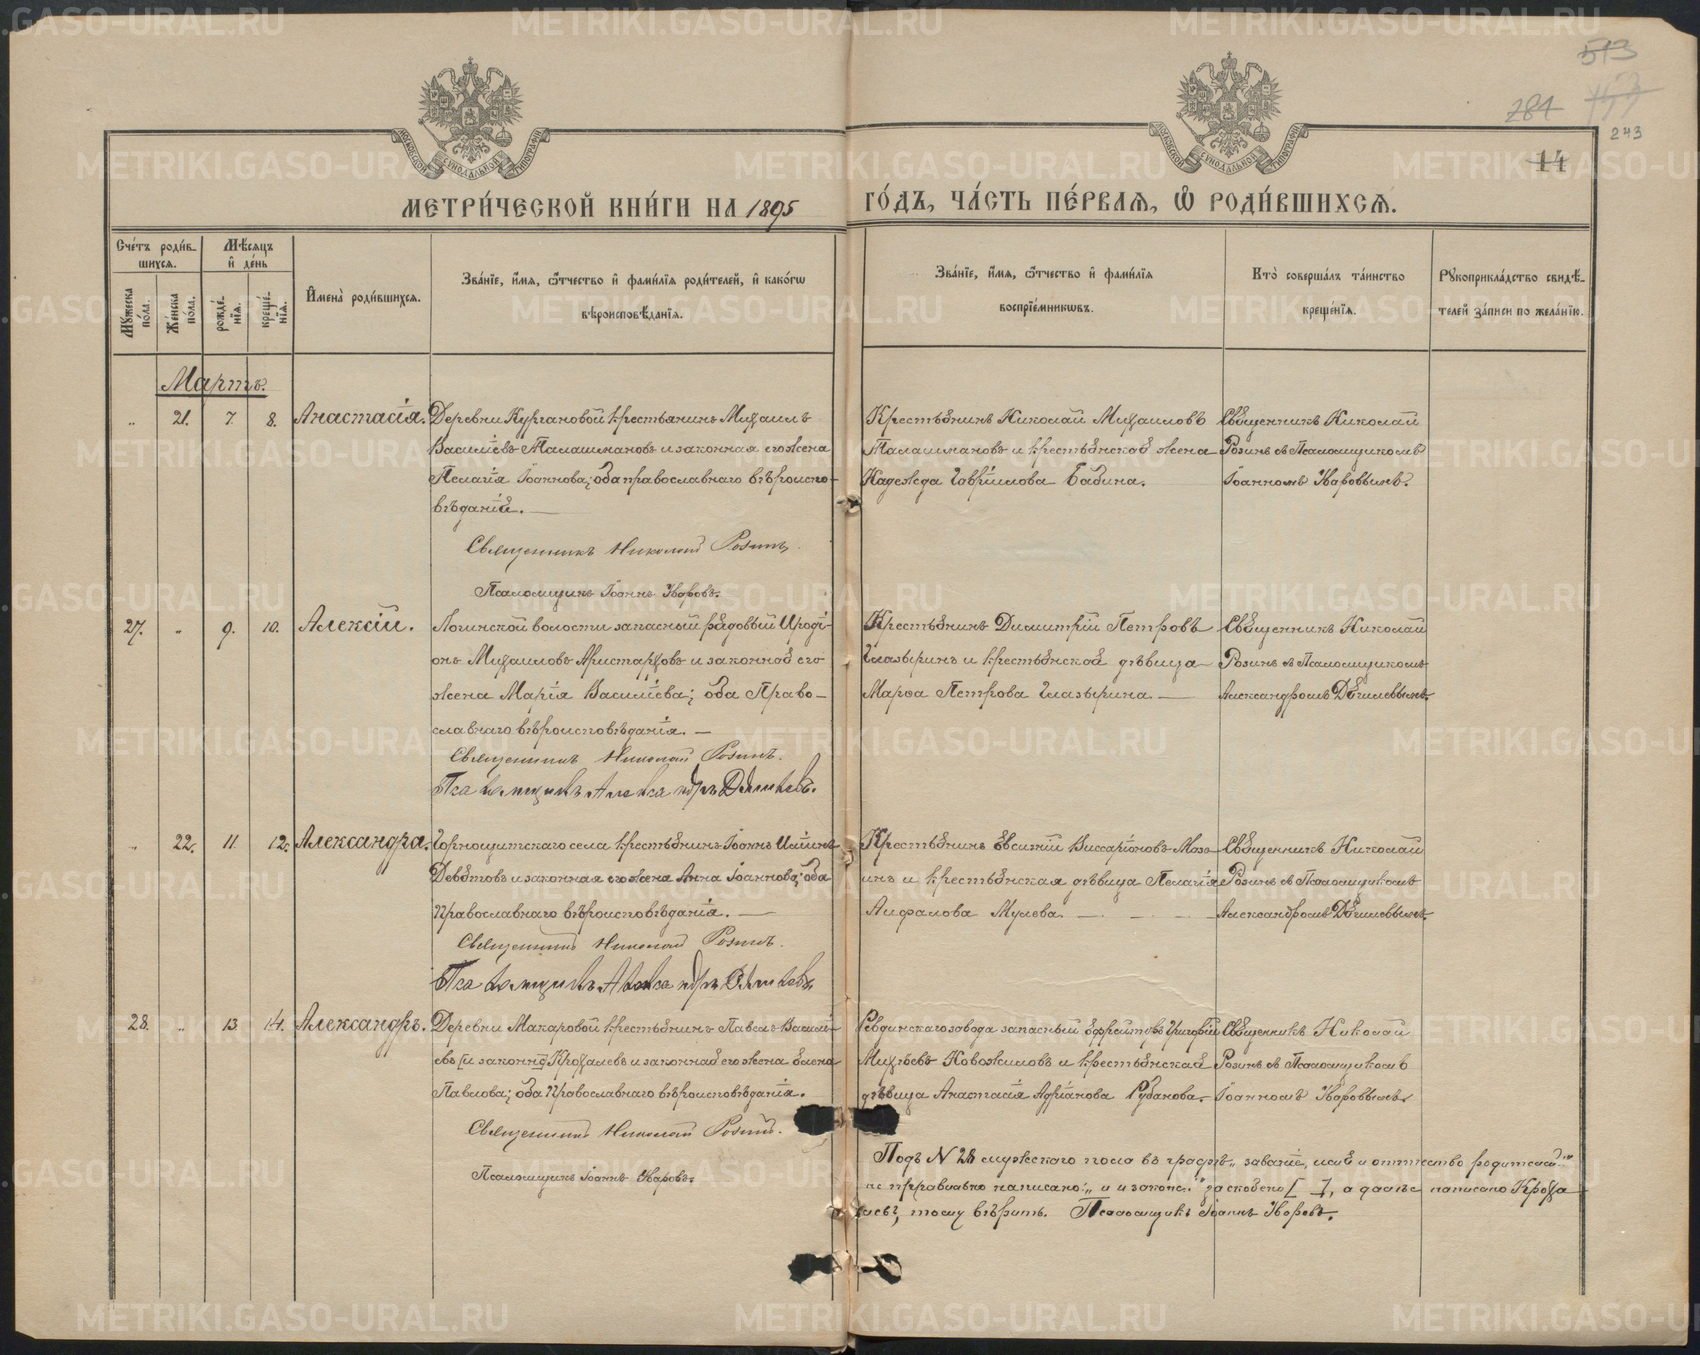 513
281
243
14
МЕТРИ́ЧЕСКОЙ КНИ́ГИ НА 1895 ГО́ДЪ, ЧА́СТЬ ПЕ́РВАѦ, Ѽ РОДИ́ВШИХСѦ.
Сче́тъ роди́в-
шихсѧ.
Мѣсѧцъ
и҆ де́нь
Мꙋ́жеска по́ла.
Же́нска по́ла.
рожде́-
нїѧ.
креще́-
нїѧ.
И҆мена̀ роди́вшихсѧ.
Зва́нїе, и҆́мѧ, ѻ҆́тчество и҆ фами́лїѧ роди́телей, и҆ како́гѡ
вѣроисповѣ́данїѧ.
Зва́нїе, и҆́мѧ, ѻ҆́тчество и҆ фами́лїѧ
воспрїе́мникѡвъ.
Кто̀ соверша́лъ та́инство
креще́нїѧ.
Рꙋкоприкла́дство свидѣ́-
телей за́писи по жела́нїю.
Мартъ.
„ 21. 7. 8. Анастасія.
Деревни Кургановой крестьянинъ Михаилъ
Васильевъ Талашмановъ и законная его жена
Пелагія Іоаннова; оба православнаго вѣроиспо-
вѣданія.
Священникъ Николай Розинъ.
Псаломщикъ Іоаннъ Уваровъ.
Крестьянинъ Николай Михаиловъ
Талашмановъ и крестьянская жена
Надежда Гавріилова Бабина.
Священникъ Николай
Розинъ съ Псаломщикомъ
Іоанномъ Уваровымъ.
27. „ 9. 10. Алексій.
Логинской волости запасный рядовый Ироді-
онъ Михаиловъ Аристарховъ и законная его
жена Марія Васильева; оба Право-
славнаго вѣроисповѣданія.
Священникъ Николай Розинъ.
Псаломщикъ Александръ
Крестьянинъ Димитрій Петровъ
Глазыринъ и крестьянская дѣвица
Марѳа Петрова Глазырина.
Священникъ Николай
Розинъ съ Псаломщикомъ
Александромъ
„ 22. 11. 12. Александра.
Горнощитскаго села крестьянинъ Іоаннъ
Девятовъ и законная его жена Анна Іоаннова; оба
православнаго вѣроисповѣданія.
Священникъ Николай Розинъ.
Псаломщикъ Александръ
Крестьянинъ Виссаріоновъ
и крестьянская дѣвица Пелагія
Мулева.
Священникъ Николай
Розинъ съ Псаломщикомъ
Александромъ
28. „ 13 14. Александръ.
Деревни Макаровой крестьянинъ Павелъ Василь-
евъ [и законна] Крохалевъ и законная его жена Елена
Павлова; оба Православнаго вѣроисповѣданія.
Священникъ Николай Розинъ.
Псаломщикъ Іоаннъ Уваровъ.
Ревдинскаго завода запасный ефрейторъ Григорій
Новожиловъ и крестьянская
дѣвица Анастасія Адріанова Рубанова.
Священникъ Николай
Розинъ съ Псаломщикомъ
Іоанномъ Уваровымъ.
Подъ N 28 мужескаго пола въ графѣ „званіе, имя и отчество родителей“
не правильно написано: „и законн“ заскоблено [ ], а далѣе написано Кроха
левъ, тому вѣрить. Псаломщикъ Іоаннъ Уваровъ.